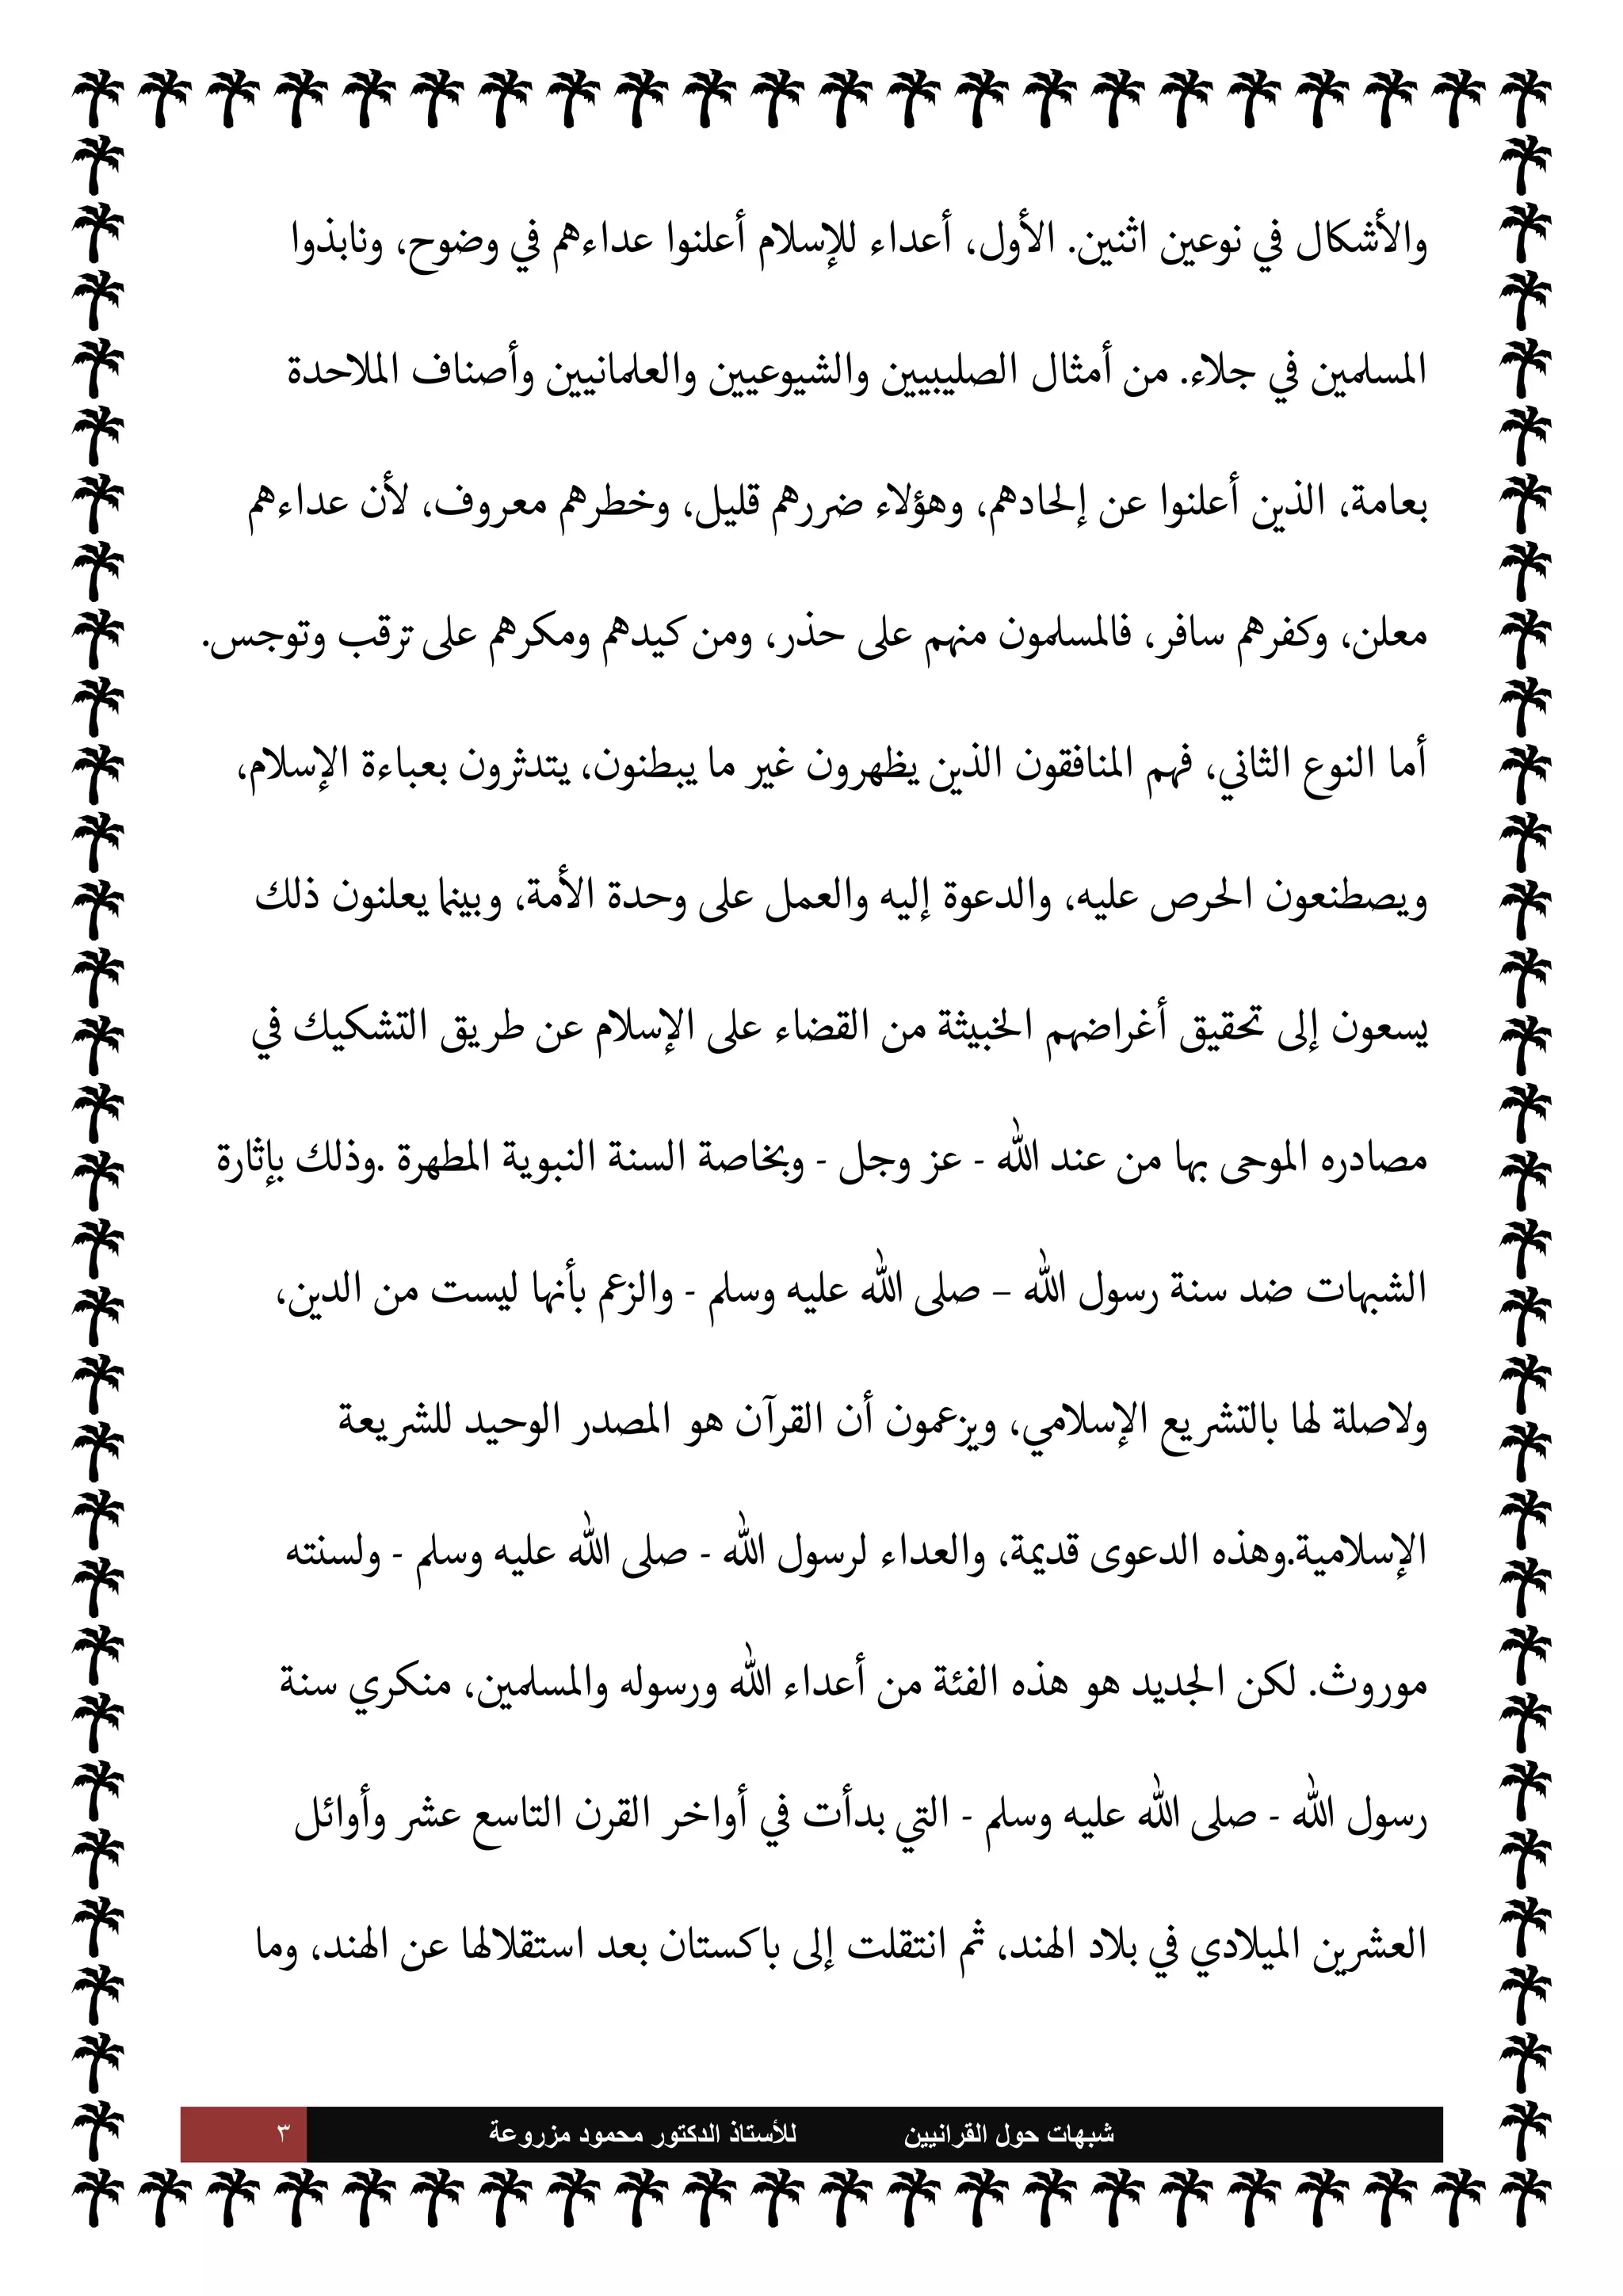 والأشكال في نوعين اثنين. الأول، أعداء للإسلام أعلنوا عداءهم في وضوح، ونابذوا
المسلمين في جلاء. من أمثال الصليبيين والشيوعيين والعلمانيين وأصناف الملاحدة
بعامة، الذين أعلنوا عن إلحادهم، وهؤلاء ضررهم قليل، وخطرهم معروف، لأن عداءهم
معلن، وكفرهم سافر، فالمسلمون منهم على حذر، ومن كيدهم ومكرهم على ترقب وتوجس.
أما النوع الثاني، فهم المنافقون الذين يظهرون غير ما يبطنون، يتدثرون بعباءة الإسلام،
ويصطنعون الحرص عليه، والدعوة إليه والعمل على وحدة الأمة، وبينما يعلنون ذلك
يسعون إلى تحقيق أغراضهم الخبيثة من القضاء على الإسلام عن طريق التشكيك في
مصادره الموحى بها من عند الله - عز وجل - وبخاصة السنة النبوية المطهرة .وذلك بإثارة
الشبهات ضد سنة رسول الله – صلى الله عليه وسلم - والزعم بأنها ليست من الدين،
ولاصلة لها بالتشريع الإسلامي، ويزعمون أن القرآن هو المصدر الوحيد للشريعة
الإسلامية.وهذه الدعوى قديمة، والعداء لرسول الله - صلى الله عليه وسلم - ولسنته
موروث. لكن الجديد هو هذه الفئة من أعداء الله ورسوله والمسلمين، منكري سنة
رسول الله - صلى الله عليه وسلم - التي بدأت في أواخر القرن التاسع عشر وأوائل
العشرين الميلادي في بلاد الهند، ثم انتقلت إلى باكستان بعد استقلالها عن الهند، وما
شبهات حول القرانيين للأستاذ الدكتور محمود مزروعة ٣